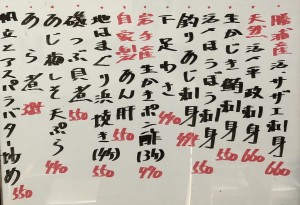 勝浦産 活サザエ刺身 660
天然 活〆平政刺身 660
生かじき鮪刺身 550
活〆ほうぼう刺身 550
釣りあじ刺身 495
下足わさ 440
岩手産 生かきポン酢(3ケ) 490
自家製 あん肝 550
地はまぐり浜焼き(4ケ) 550
磯つぶ貝煮 550
あら梅しそ天ぷら 440
あら煮
帆立とアスパラバター炒め 550